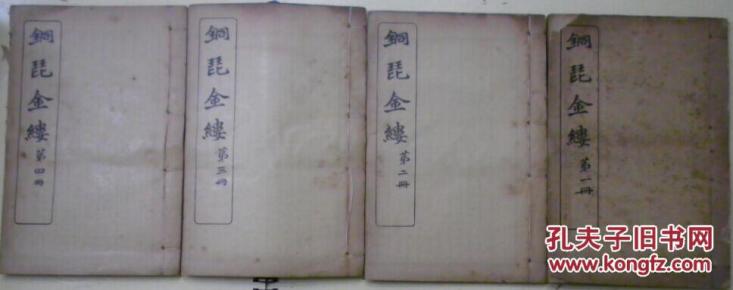 銅琵金縷 第一冊
銅琵金縷 第二冊
銅琵金縷 第三冊
銅琵金縷 第四冊
孔夫子旧书网
www.kongfz.com